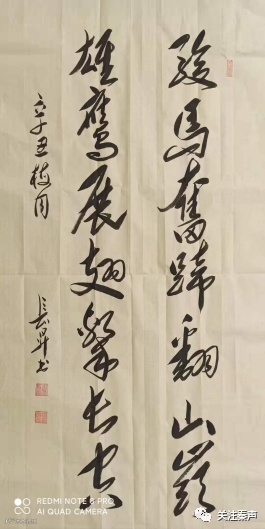 駿馬奮蹄翻山嶺
雄鷹展翅擊长空
辛丑 月
長昇书
REDMI NOTE 8 PRO
AI QUAD CAMERA
关注秦声